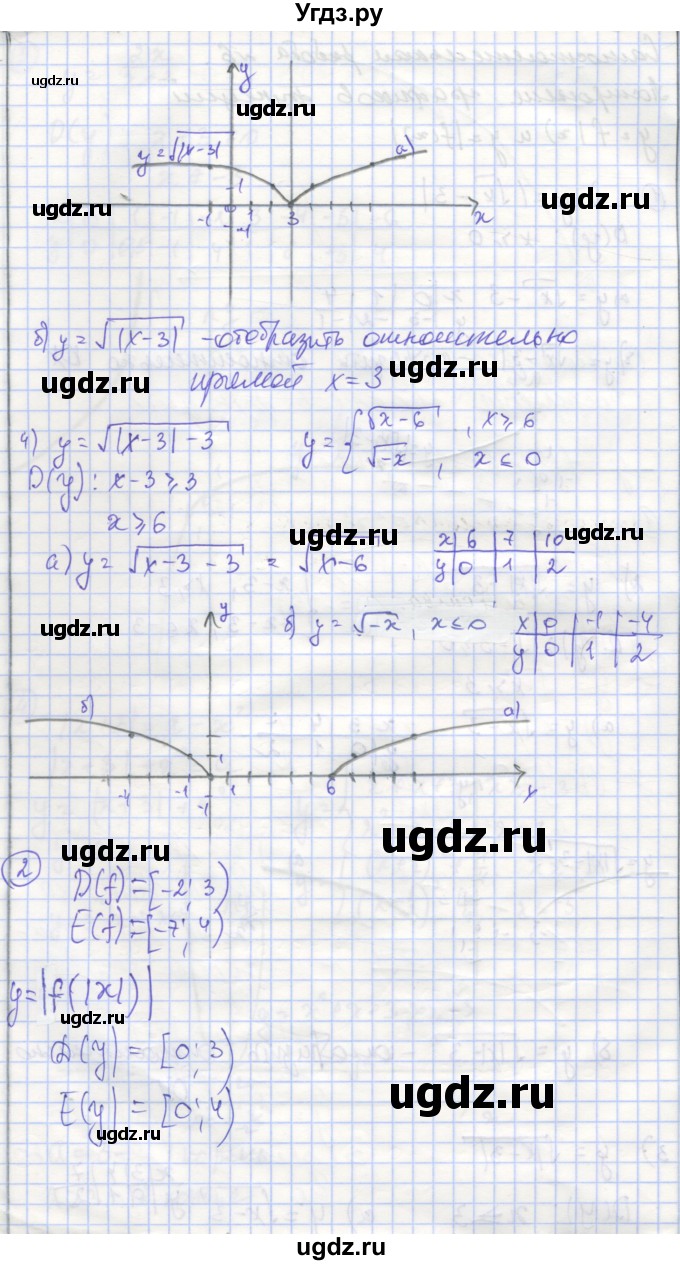 Угдз.ру
ugdz.ru
y
ugdz.ru
y = √|x-3|
а)
1
ugdz.ru
ugdz.ru
-1 0 1 3 x
-1
б) y = √|x-3| - отобразить относительно
ugdz.ru прямой x = 3 ugdz.ru
4) y = √|x-3|-3 y = { √x-6, x ⩾ 6
√-x, x ⩽ 0
D(y): x-3 ⩾ 3
x ⩾ 6
ugdz.ru ugdz.ru
а) y = √x-3-3 = √x-6 x | 6 | 7 | 10
y | 0 | 1 | 2
ugdz.ru y б) y = √-x, x ⩽ 0 x | 0 | -1 | -4
y | 0 | 1 | 2
б) а)
1
-4 -1 1 6 x
-1
ugdz.ru
ugdz.ru
2
D(f) = [-2; 3)
E(f) = [-7; 4)
y = |f(|x|)|
ugdz.ru
D(y) = [0; 3)
ugdz.ru
E(y) = [0; 4)
ugdz.ru
ugdz.ru